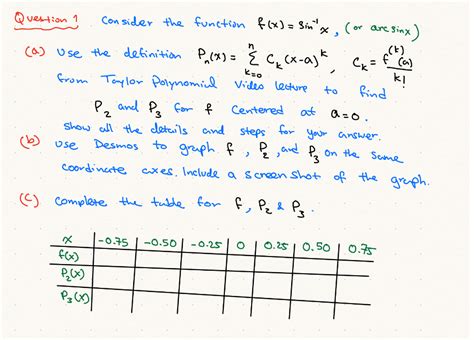 Question 1 Consider the function f(x) = sin⁻¹x, (or arcsinx)
(a) Use the definition Pₙ(x) = Σ_{k=0}^{n} Cₖ (x-a)ᵏ, Cₖ = f⁽ᵏ⁾(a)/k!
from Taylor Polynomial Video lecture to find
P₂ and P₃ for f centered at a=0.
show all the details and steps for your answer.
(b) use Desmos to graph f, P₂, and P₃ on the same
coordinate axes. Include a screenshot of the graph.
(c) Complete the table for f, P₂ & P₃.
x | -0.75 | -0.50 | -0.25 | 0 | 0.25 | 0.50 | 0.75
f(x)
P₂(x)
P₃(x)